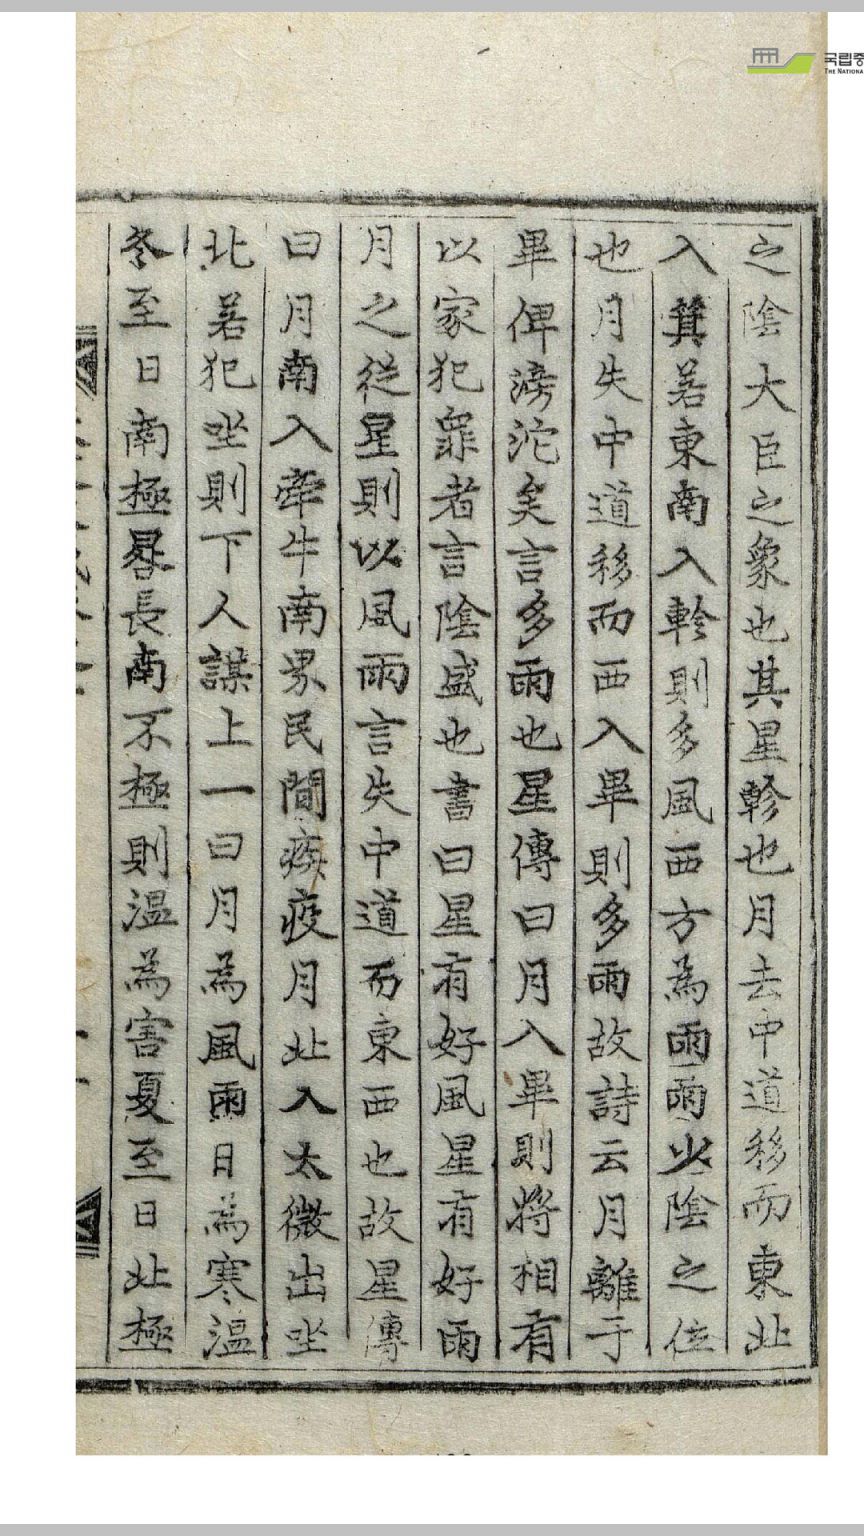 之陰大臣之象也其星軫也月去中道移而東北
入箕若東南入軫則多風西方為雨雨少陰之位
也月失中道移而西入畢則多雨故詩云月離于
畢俾滂沱矣言多雨也星傳曰月入畢則將相有
以家犯辠者言陰盛也書曰星有好風星有好雨
月之從星則以風雨言失中道而東西也故星傳
曰月南入牽牛南界民間疾疫月北入太微出坐
北若犯坐則下人謀上一曰月為風雨日為寒溫
冬至日南極晷長南不極則溫為害夏至日北極
THE NATIONA